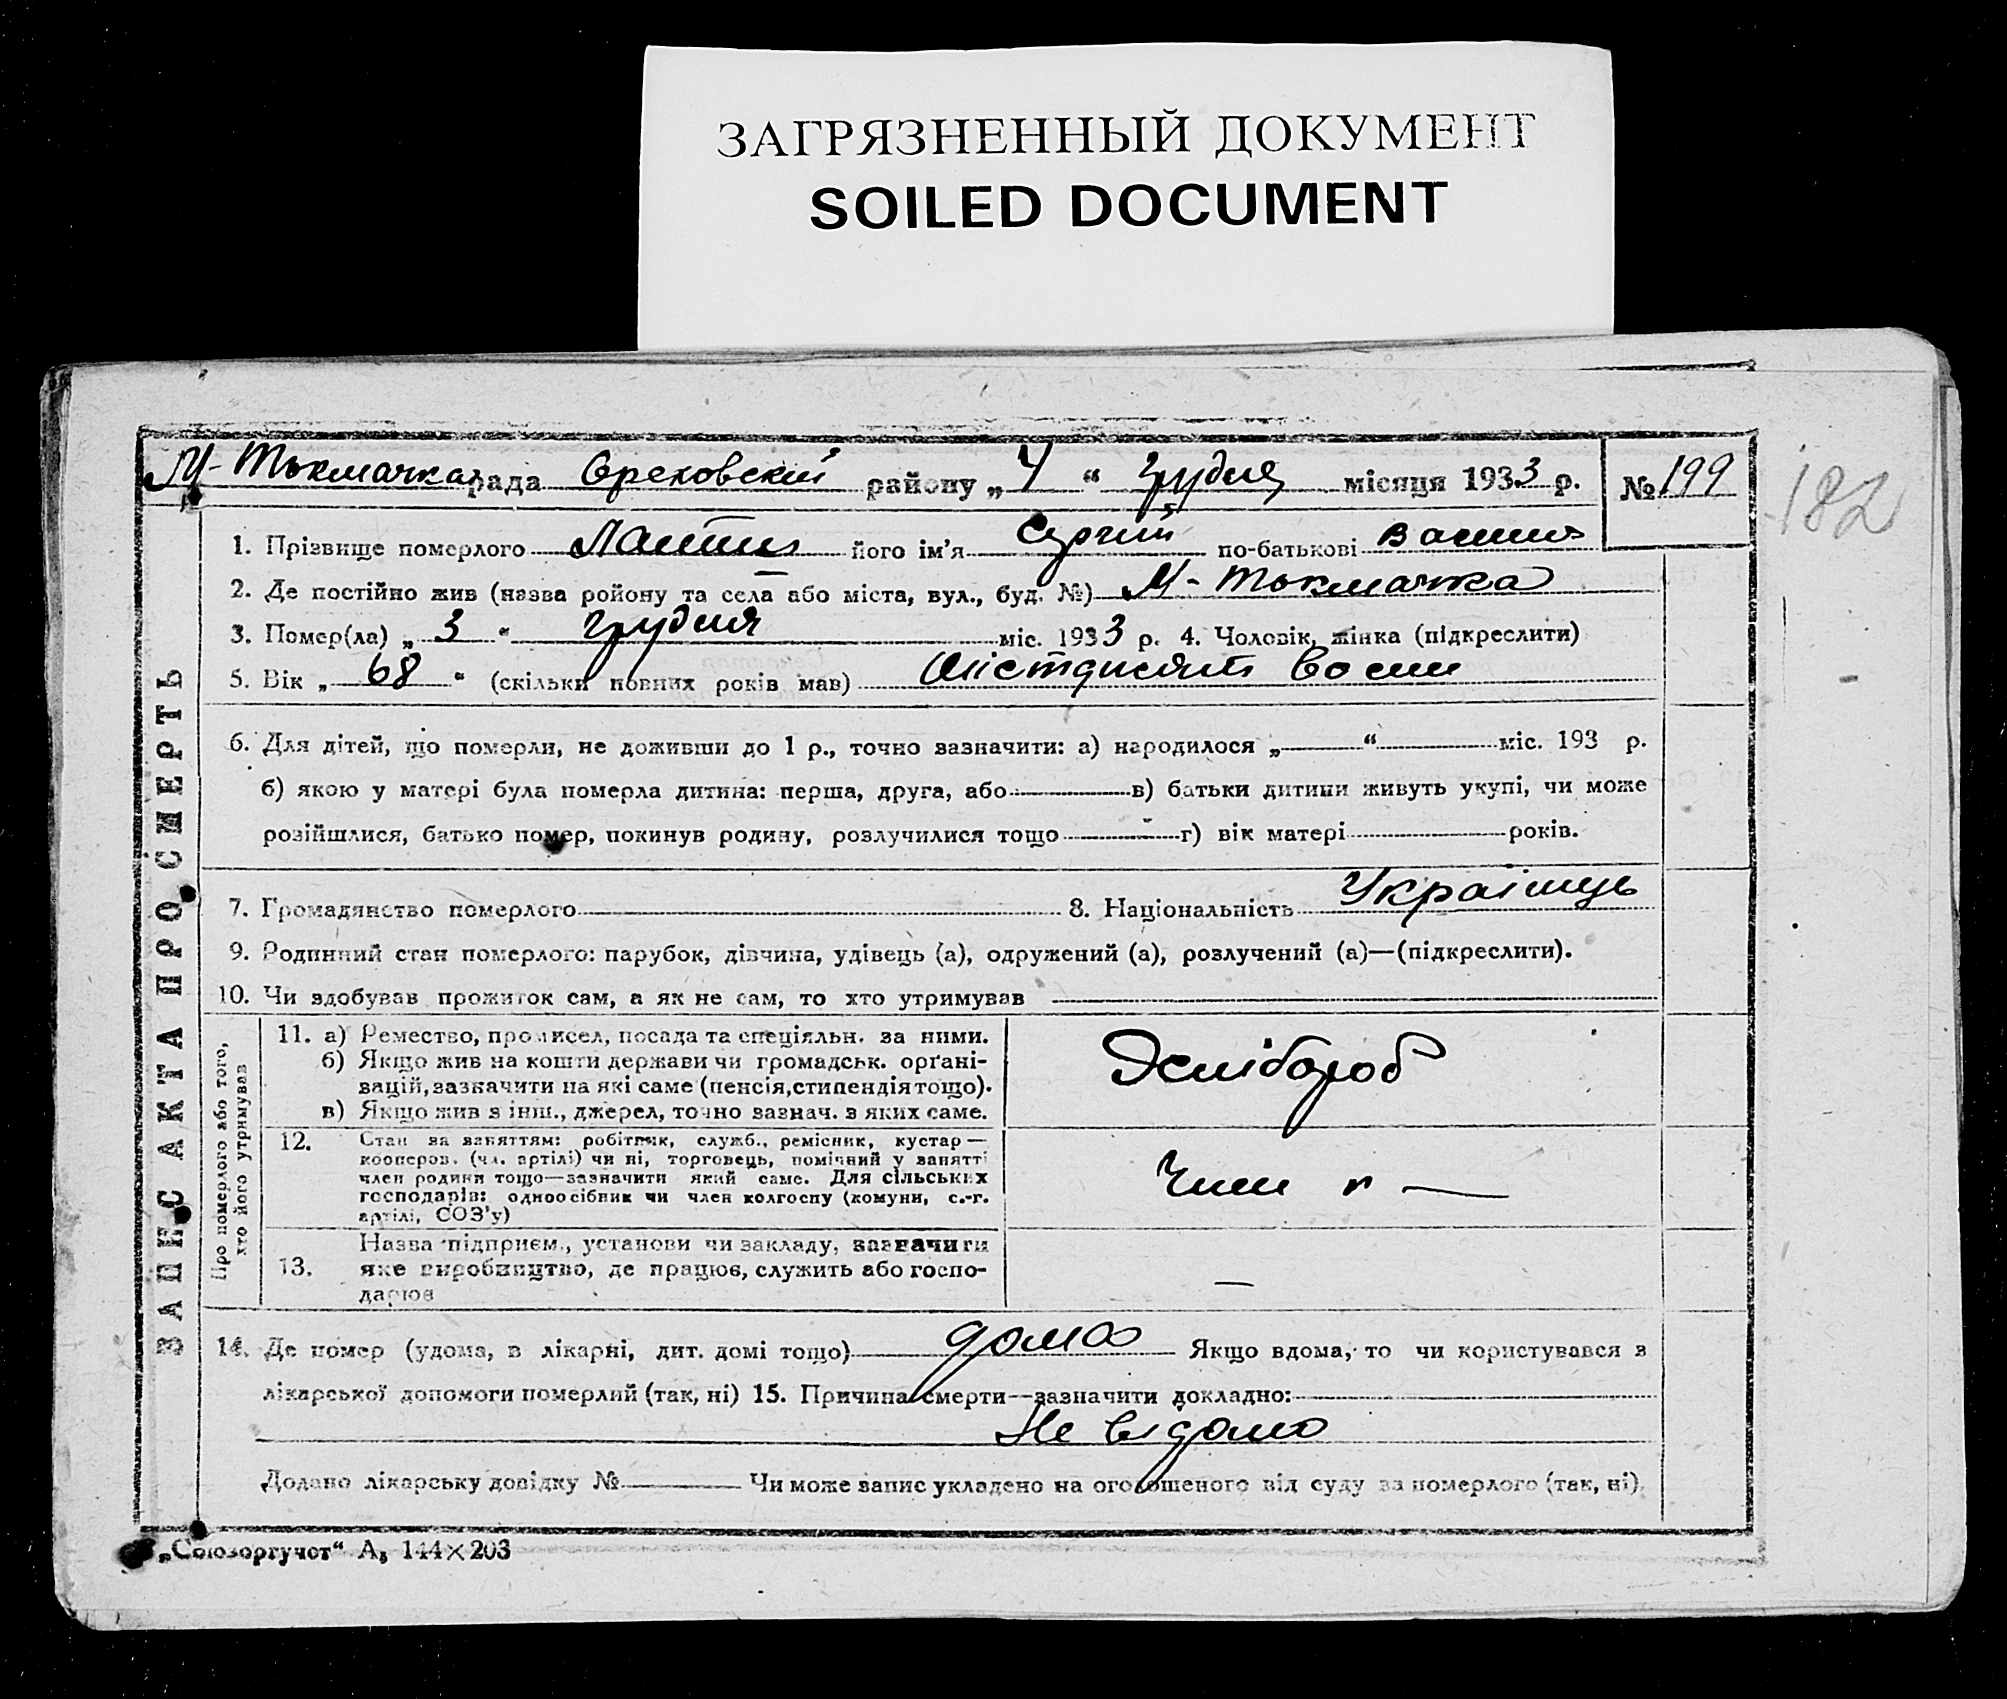 ЗАГРЯЗНЕННЫЙ ДОКУМЕНТ
SOILED DOCUMENT
М-Токмачка рада Ореховский району „4“ грудня місяця 1933 р. № 199
182
1. Прізвище померлого його ім'я Сергий по-батькові
2. Де постійно жив (назва ройону та села або міста, вул., буд. №) М-Токмачка
3. Помер(ла) „3“ грудня міс. 1933 р. 4. Чоловік, жінка (підкреслити)
5. Вік „68“ (скільки повних років мав) шістдисят восим
6. Для дітей, що померли, не доживши до 1 р., точно зазначити: а) народилося „—“ міс. 193 р.
б) якою у матері була померла дитина: перша, друга, або в) батьки дитини живуть укупі, чи може
розійшлися, батько помер, покинув родину, розлучилися тощо г) вік матері років.
7. Громадянство померлого 8. Національність Українць
9. Родинний стан померлого: парубок, дівчина, удівець (а), одружений (а), розлучений (а)—(підкреслити).
10. Чи здобував прожиток сам, а як не сам, то хто утримував
ЗАПЕС АКТА ПРО СМЕРТЬ
Про померлого або того, хто його утримував
11. а) Ремество, промисел, посада та спеціяльн. за ними.
б) Якщо жив на кошти держави чи громадськ. орґані-
зацій, зазначити на які саме (пенсія, стипендія тощо).
в) Якщо жив з інш., джерел, точно зазнач. з яких саме.
Хлібороб
12. Стан за заняттям: робітник, служб., ремісник, кустар—
кооперов. (чл. артілі) чи ні, торговець, помічний у занятті
член родини тощо—зазначити який саме. Для сільських
господарів: одноосібник чи член колгоспу (комуни, с.-г.
артілі, СОЗ'у)
Член к —
Назва підприєм., установи чи закладу, зазначити
13. яке виробництво, де працює, служить або госпо-
дарює
—
14. Де помер (удома, в лікарні, дит. домі тощо) дома Якщо вдома, то чи користувався з
лікарської допомоги померлий (так, ні) 15. Причина смерти—зазначити докладно:
Не відомо
Додано лікарську довідку № Чи може запис укладено на оголошеного від суду за померлого (так, ні).
„Союзоргучот“ А₅ 144×203